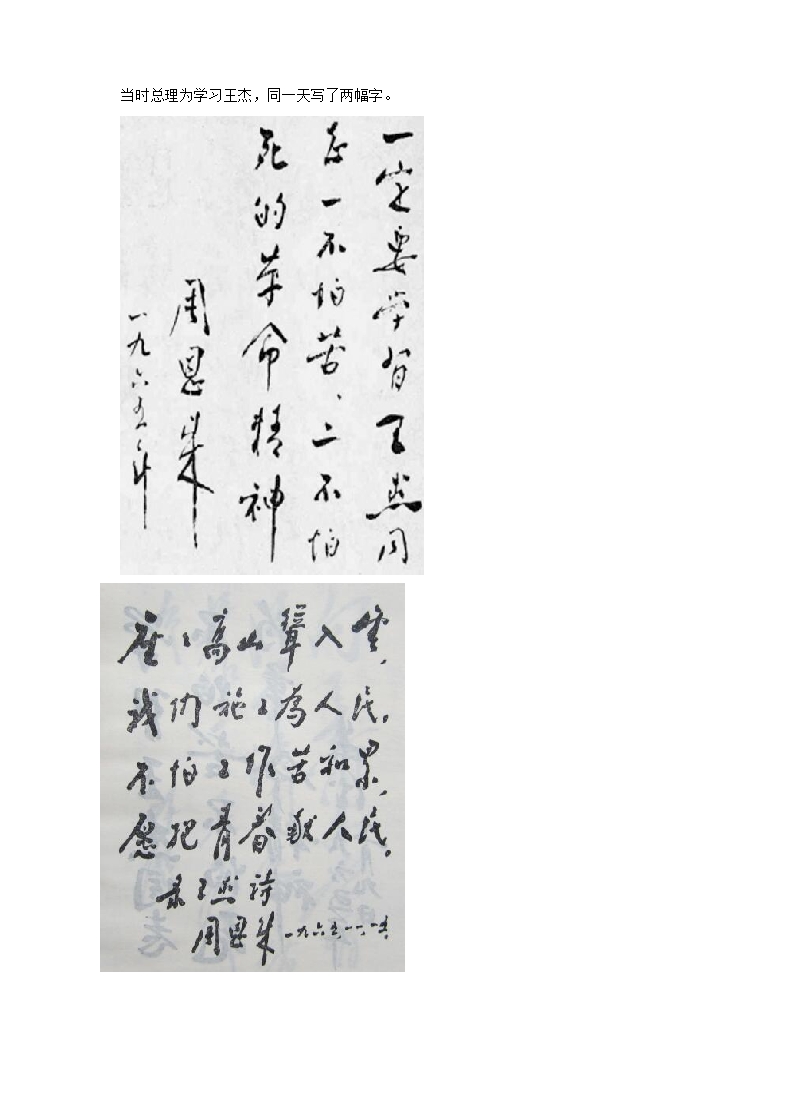 当时总理为学习王杰，同一天写了两幅字。
一定要学习王杰同
志一不怕苦、二不怕
死的革命精神
周恩来
一九六五年
座々高山聳入雲，
我们施工為人民。
不怕工作苦和累，
愿把青春献人民。
录王杰诗
周恩来 一九六五、一一、一五、